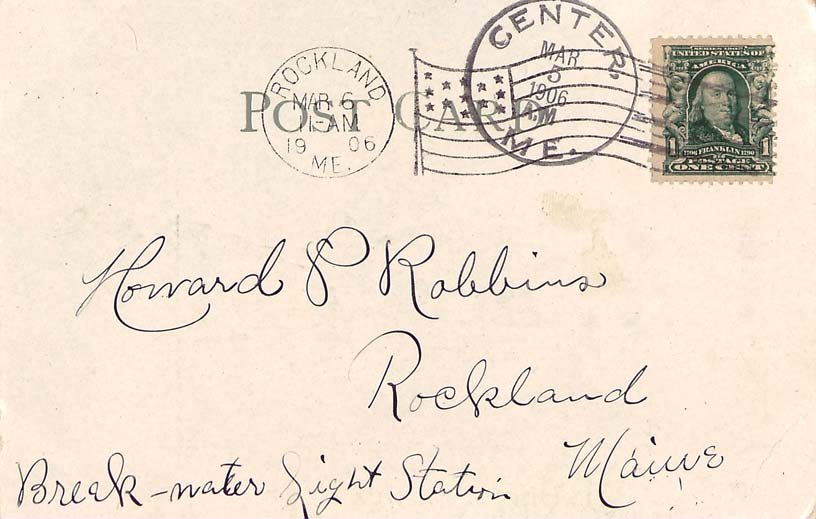 ROCKLAND
MAR 6
11-AM
19 06
ME.
CENTER,
MAR.
5
1906
A.M
ME.
POST CARD
SERIES 1902
UNITED STATES OF
AMERICA
1 1
1706 FRANKLIN 1790
POSTAGE
ONE CENT
Howard P Robbins
Rockland
Maine
Break-water Light Station